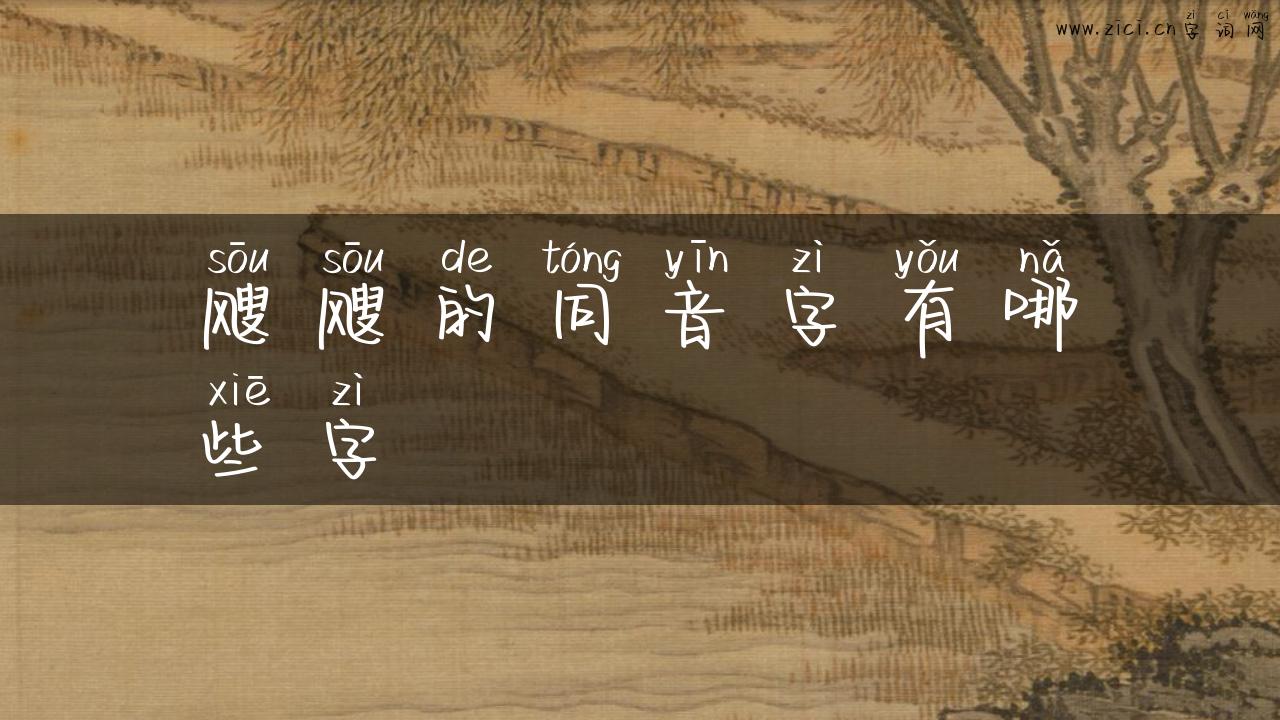 zì cí wǎng
www.zici.cn字词网
sōu sōu de tóng yīn zì yǒu nǎ
飕飕的同音字有哪
xiē zì
些字